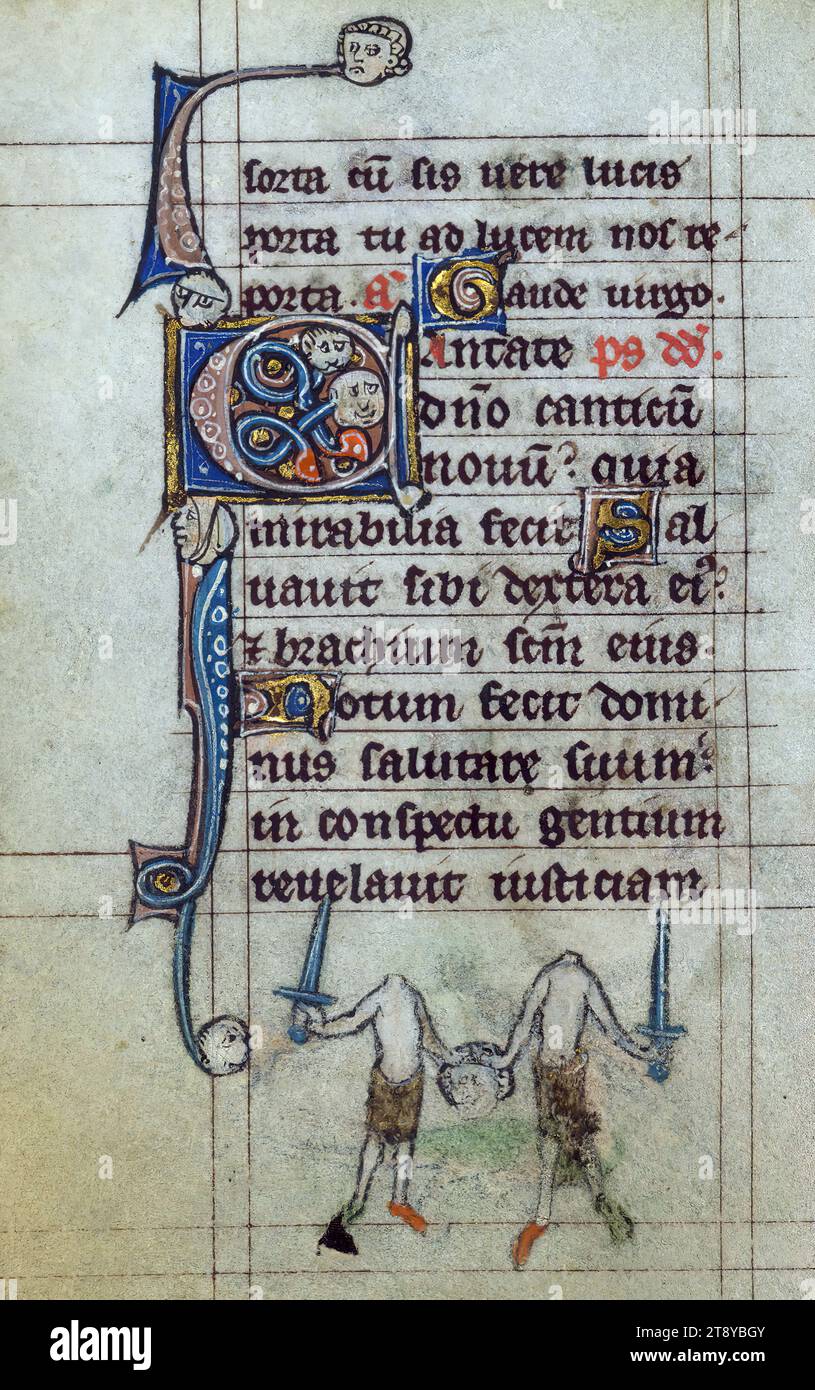 sorta cū sis vere lucis
porta tu ad lucem nos re-
porta. a̅ Gaude uirgo.
Cantate ps dd̅.
dn̅o canticū
nouū? quia
mirabilia fecit Sal
uauit sibi dextera ei9?
⁊ brachium scm̅ eius.
Notum fecit domi-
nus salutare suum?
in conspectu gentium
reuelauit iusticiam
alamy
Image ID: 2T8YBGY
www.alamy.com